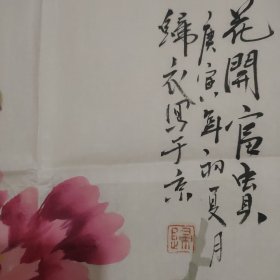 花開富貴
庚寅年初夏月
歸衣寫于京